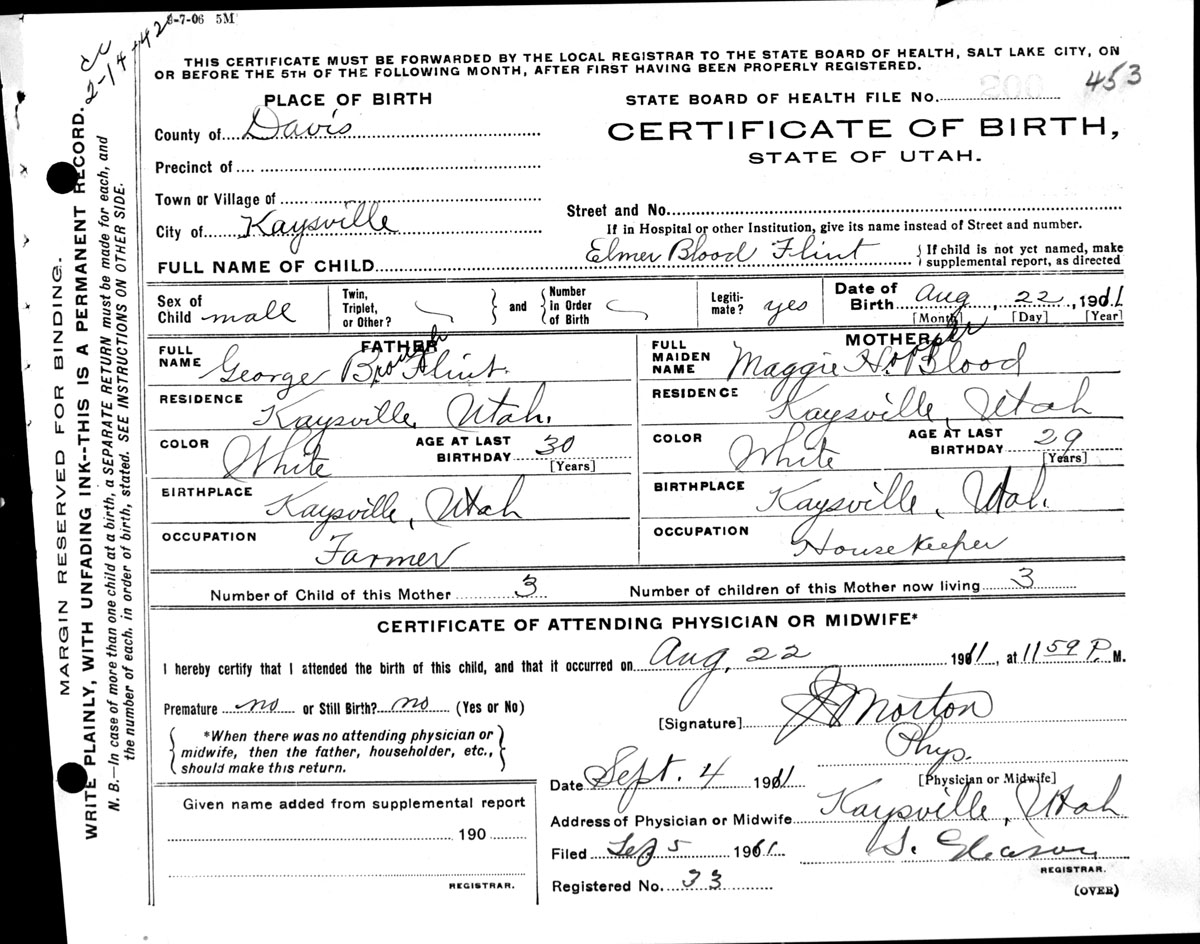 8-7-06 5M
2-14-42
THIS CERTIFICATE MUST BE FORWARDED BY THE LOCAL REGISTRAR TO THE STATE BOARD OF HEALTH, SALT LAKE CITY, ON
OR BEFORE THE 5TH OF THE FOLLOWING MONTH, AFTER FIRST HAVING BEEN PROPERLY REGISTERED.
453
PLACE OF BIRTH
STATE BOARD OF HEALTH FILE No.
County of Davis
CERTIFICATE OF BIRTH,
STATE OF UTAH.
Precinct of
Town or Village of
Street and No.
City of Kaysville
If in Hospital or other Institution, give its name instead of Street and number.
FULL NAME OF CHILD Elmer Blood Flint {If child is not yet named, make
supplemental report, as directed
Sex of Child male
Twin, Triplet, or Other? } and { Number in Order of Birth
Legitimate? yes
Date of Birth Aug 22, 1911
[Month] [Day] [Year]
FATHER
FULL NAME George Brough Flint.
RESIDENCE Kaysville, Utah.
COLOR White AGE AT LAST BIRTHDAY 30 [Years]
BIRTHPLACE Kaysville, Utah
OCCUPATION Farmer
MOTHER
FULL MAIDEN NAME Maggie Hooper Blood
RESIDENCE Kaysville, Utah
COLOR White AGE AT LAST BIRTHDAY 29 [Years]
BIRTHPLACE Kaysville, Utah.
OCCUPATION Housekeeper
Number of Child of this Mother 3 Number of children of this Mother now living 3
CERTIFICATE OF ATTENDING PHYSICIAN OR MIDWIFE*
I hereby certify that I attended the birth of this child, and that it occurred on Aug. 22 1911, at 11 59 P. M.
Premature no or Still Birth? no (Yes or No)
{*When there was no attending physician or
midwife, then the father, householder, etc.,
should make this return.}
[Signature] Morton
Phys.
[Physician or Midwife]
Date Sept. 4 1911
Given name added from supplemental report
190
REGISTRAR.
Address of Physician or Midwife Kaysville, Utah
Filed Sep 5 1911 Gleason
REGISTRAR.
Registered No. 33
(OVER)
MARGIN RESERVED FOR BINDING.
WRITE PLAINLY, WITH UNFADING INK--THIS IS A PERMANENT RECORD.
N. B.—In case of more than one child at a birth, a SEPARATE RETURN must be made for each, and
the number of each, in order of birth, stated. SEE INSTRUCTIONS ON OTHER SIDE.